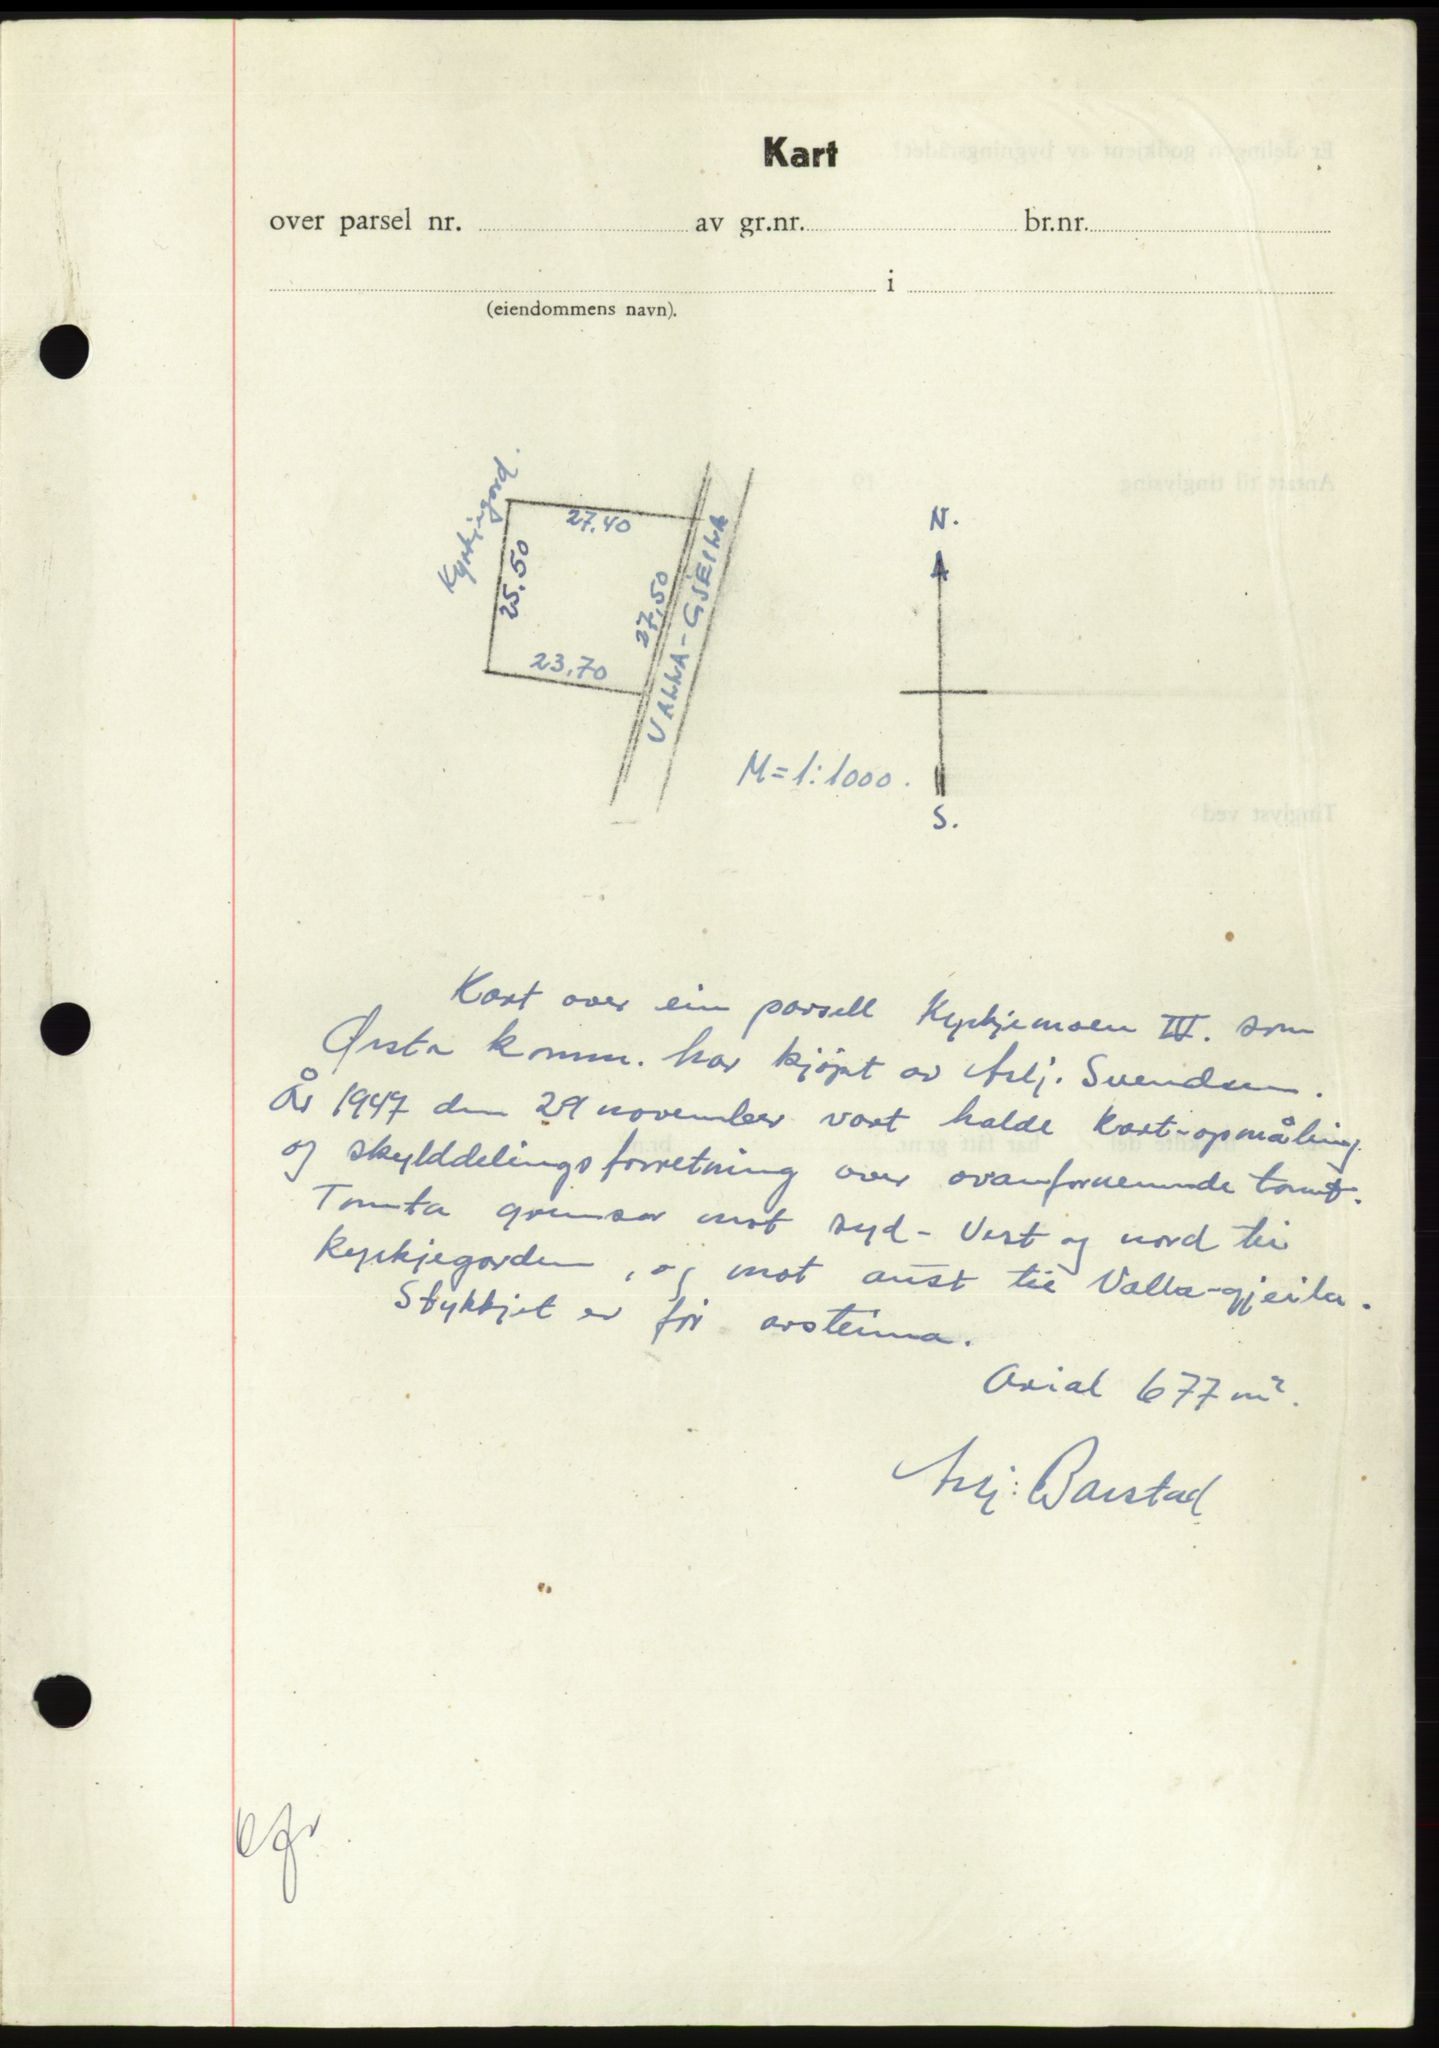 Kart
over parsel nr. av gr.nr. br.nr.
i
(eiendommens navn).
Kyrkjegord.
27.40
25.50
27,50
23,70
VALLA-GJEILA
N.
S.
M=1:1000.
Kart over ein parsell Kyrkjemoen IV. som
Ørsta komm. har kjøpt av Asbj. Svendsen.
År 1947 den 29 november vart halde kart-opmåling
og skylddelingsforretning over ovanfornemnde tomt.
Tomta grensar mot syd-Vest og nord til
kyrkjegorden, og mot aust til Valla-gjeila.
Stykkjet er for austeina.
Arial 677 m².
Barstad